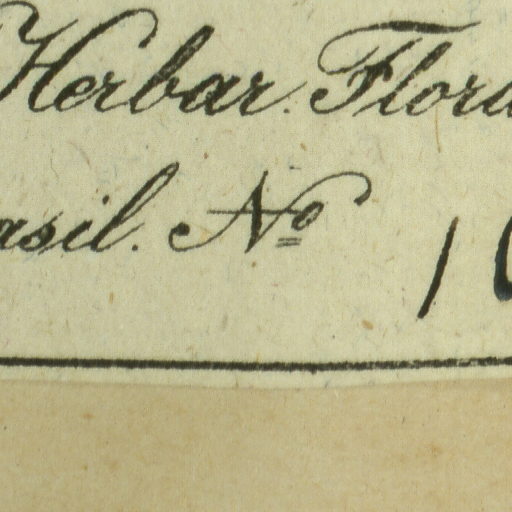 Herbar. Flora
asil. Nº 1